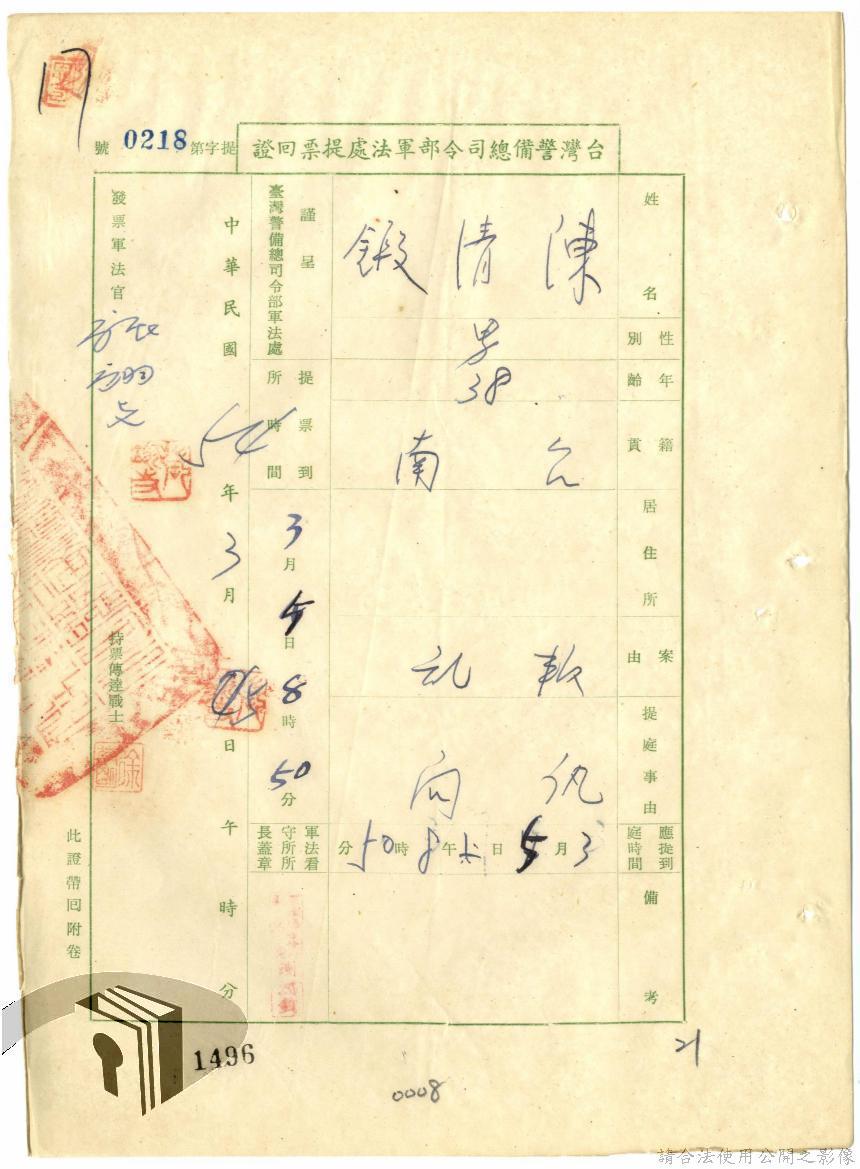 台灣警備總司令部軍法處提票回證
提字第0218號
姓名 陳清鍛
性別 男
年齡 38
籍貫 台南
居住所
案由 叛乱
提庭事由 訊问
應提到庭時間 3月5日上午8時50分
備考
謹呈
臺灣警備總司令部軍法處
提票到所時間 3月5日8時50分
軍法看守所所長蓋章
中華民國54年3月日午時分
發票軍法官
持票傳達戰士
此證帶回附卷
1496
0008
21
請合法使用公開之影像